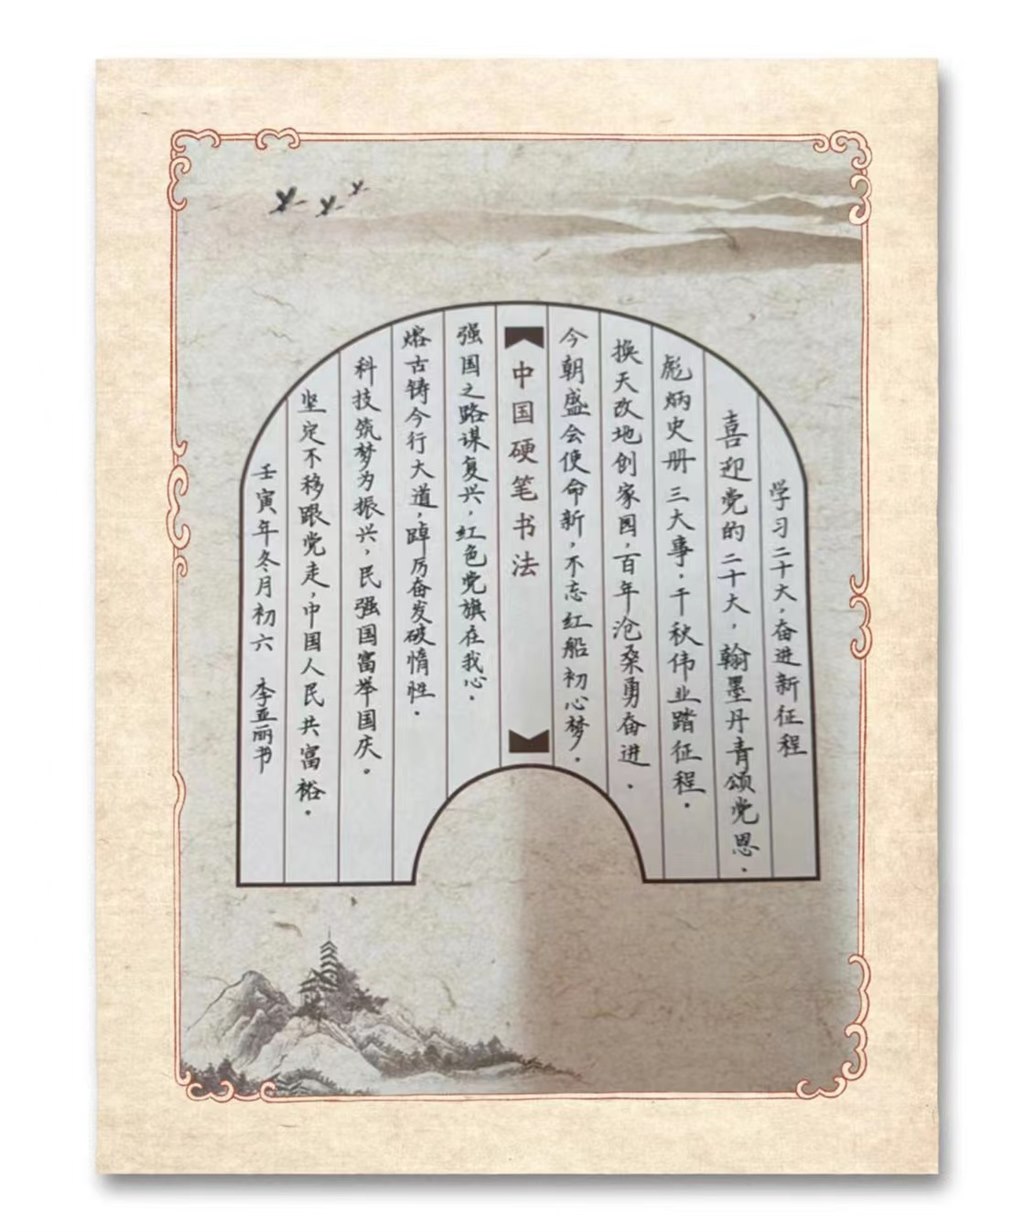 学习二十大，奋进新征程
喜迎党的二十大，翰墨丹青颂党恩。
彪炳史册三大事，千秋伟业踏征程。
换天改地创家园，百年沧桑勇奋进。
今朝盛会使命新，不忘红船初心梦。
中国硬笔书法
强国之路谋复兴，红色党旗在我心。
熔古铸今行大道，踔厉奋发破惰性。
科技筑梦为振兴，民强国富举国庆。
坚定不移跟党走，中国人民共富裕。
壬寅年冬月初六 李亚丽书